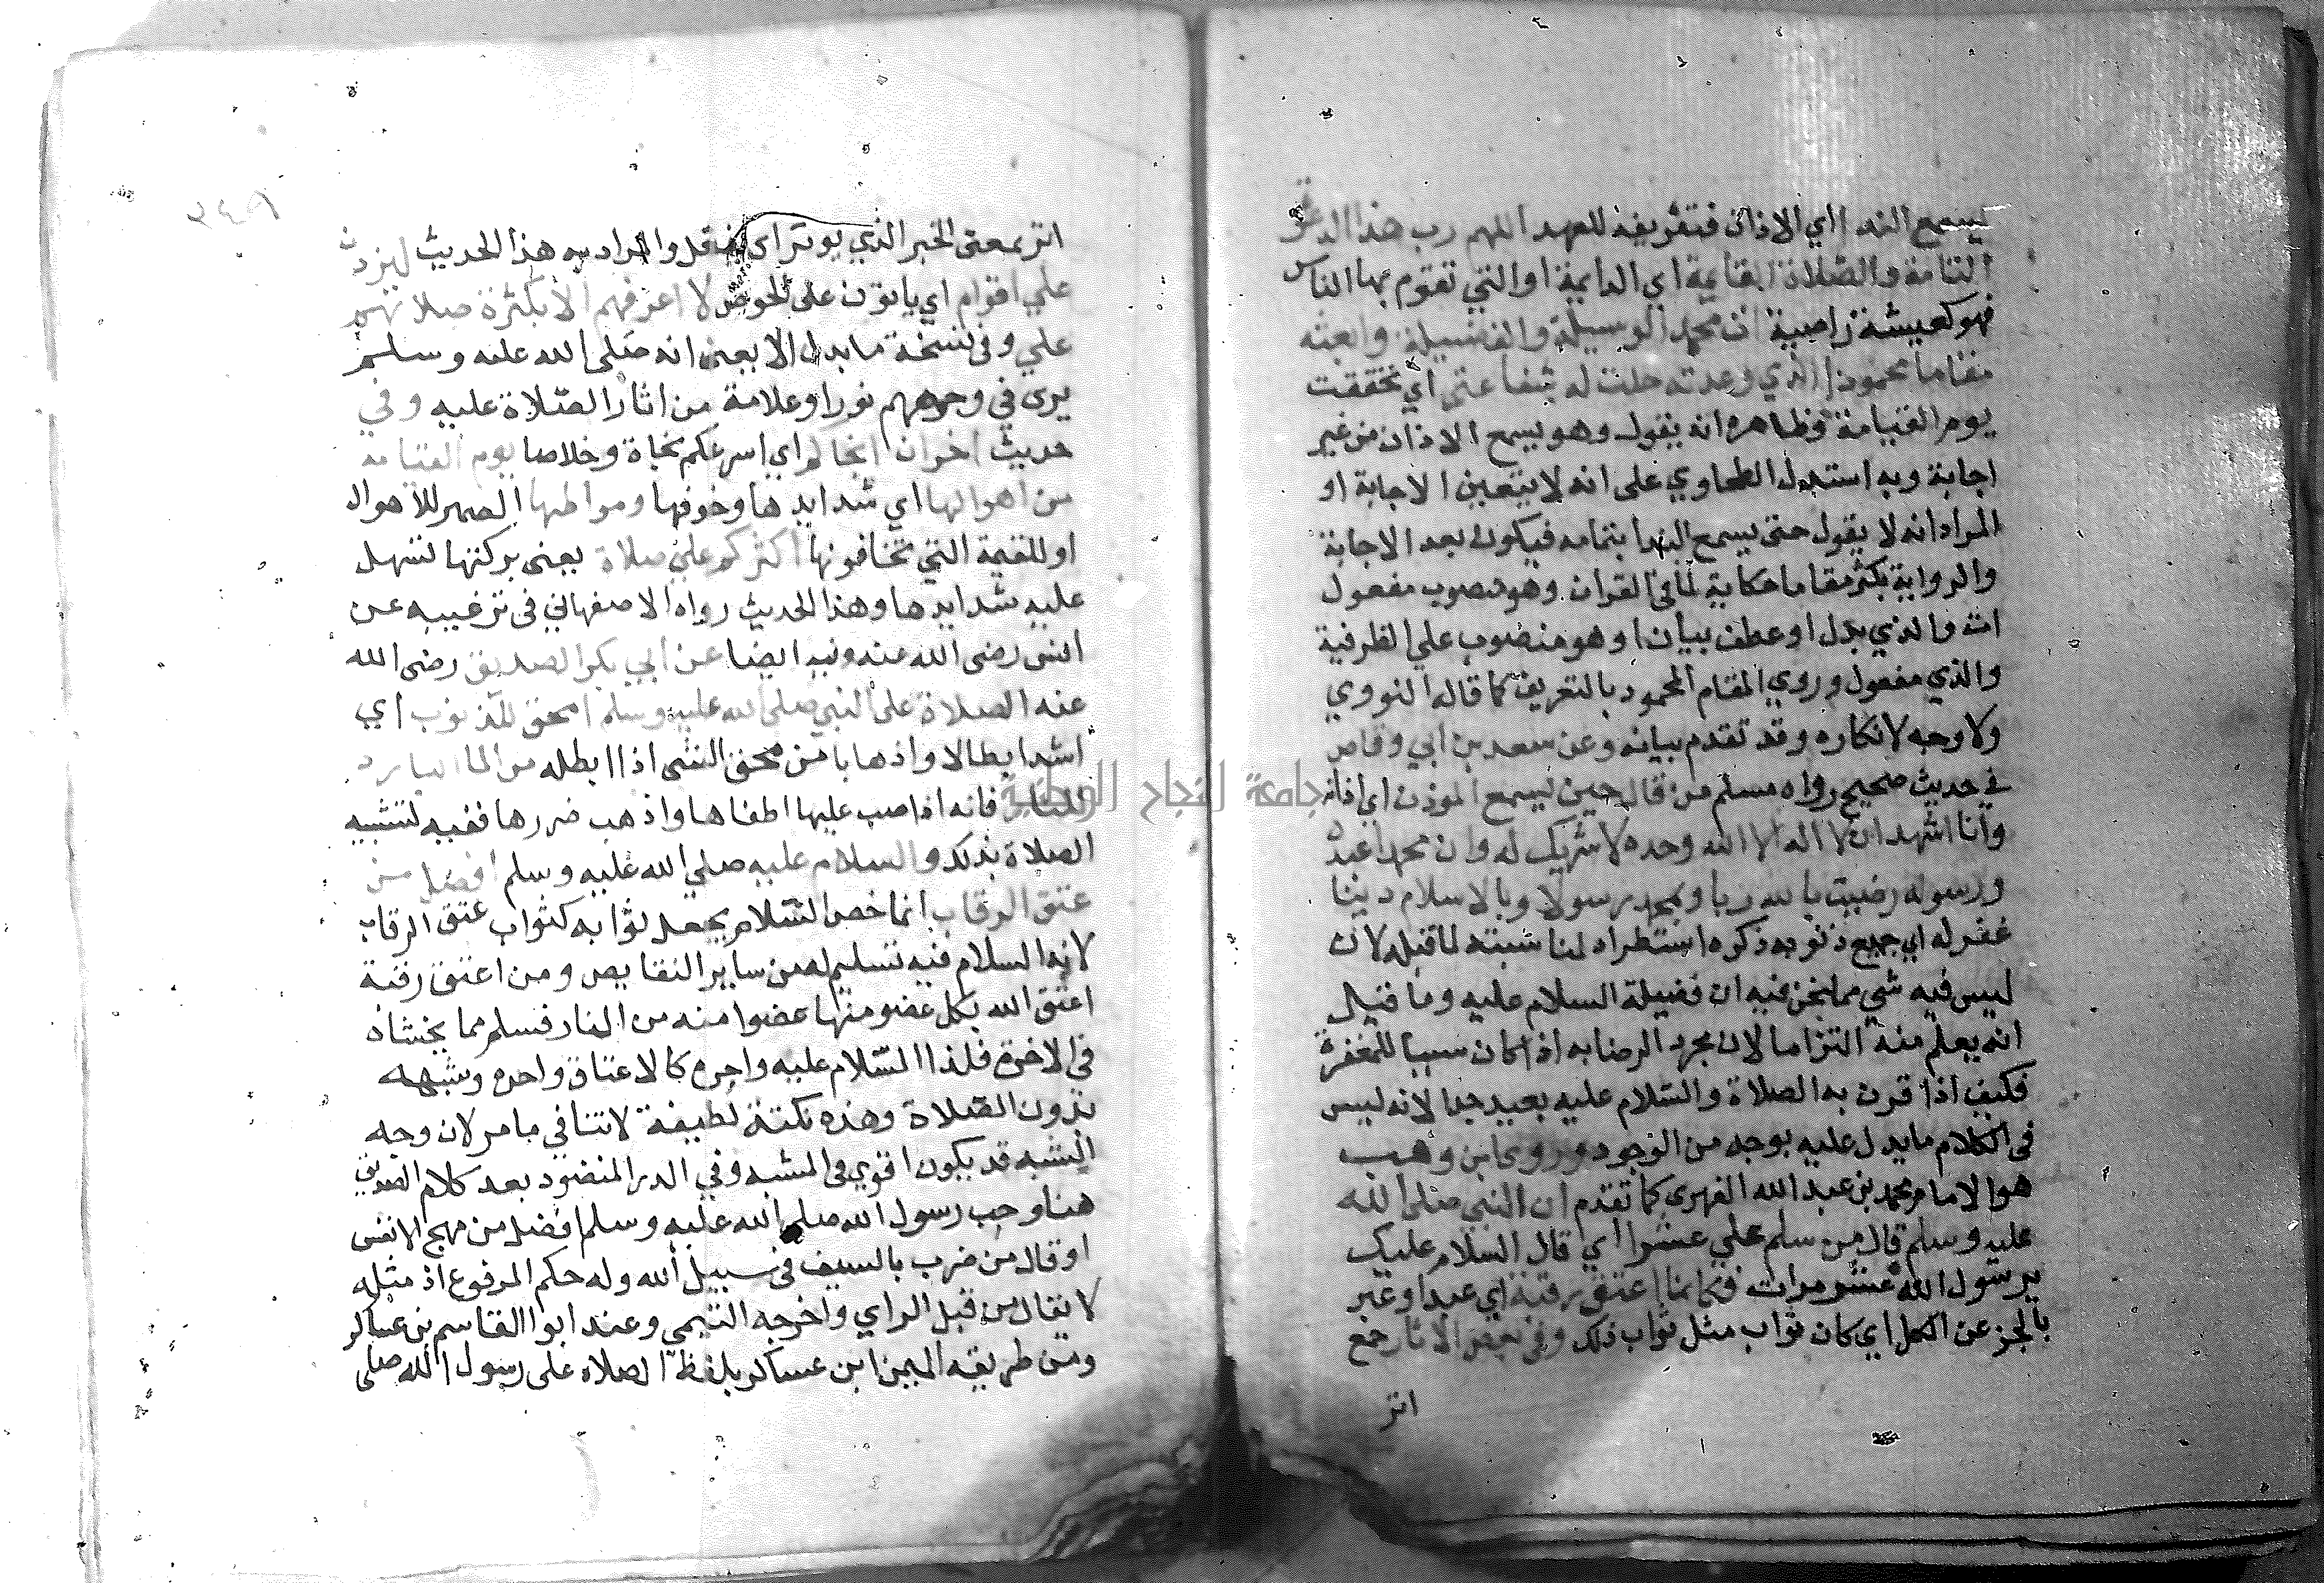 يسمع الندا اي الاذان فتعريفه للعهد اللهم رب هذا الدعوة
التامة والصلاة القايمة اي الدايمة او التي تقوم بها الناس
فهو كعيشة راضية ات محمد الوسيلة والفضيلة وابعثه
مقاما محمودا الذي وعدته حلت له شفاعتي اي تحققت
يوم القيامة وظاهره انه يقول وهو يسمع الاذان من غير
اجابة وبه استدل الطحاوي على انه لا يتعين الاجابة او
المراد انه لا يقول حتى يسمع الندا بتمامه فيكون بعد الاجابة
والرواية بكثر مقاما حكاية لما في القران وهو منصوب مفعول
ات والذي بدل او عطف بيان او هو منصوب على الظرفية
والذي مفعول وروي المقام المحمود بالتعريف كما قاله النووي
ولا وجه لانكاره وقد تقدم بيانه وعن سعد بن ابي وقاص
في حديث صحيح رواه مسلم من قال حين يسمع الموذن اي اذانه
وانا اشهد ان لا اله الا الله وحده لا شريك له وان محمدا عبده
ورسوله رضيت بالله ربا وبمحمد رسولا وبالاسلام دينا
غفر له اي جميع ذنوبه ذكره استطراد لمناسبته لما قبله لان
ليس فيه شي مما نحن فيه ان فضيلة السلام عليه وما قيل
انه يعلم منه التزاما لان مجرد الرضا به اذا كان سببا للمغفرة
فكيف اذا قرن به الصلاة والسلام عليه بعيد جدا لانه ليس
في الكلام ما يدل عليه بوجه من الوجود وروى ابن وهب
هو الامام محمد بن عبد الله الفهري كما تقدم ان النبي صلى الله
عليه وسلم قال من سلم علي عشرا اي قال السلام عليك
يرسول الله عشر مرات فكانما اعتق رقبة اي عبدا وعبر
بالجز عن الكل اي كان ثواب مثل ثواب ذلك وفي بعض الاثار جمع
اثر
اثر بمعنى الخبر الذي يوثر اي ينقل والمراد به هذا الحديث ليردن
علي اقوام اي ياتون على الحوض لا اعرفهم الا بكثرة صلاتهم
علي وفي نسخة ما بدل الا يعني انه صلى الله عليه وسلم
يرى في وجوههم نورا وعلامة من اثار الصلاة عليه وفي
حديث اخر ان انجاكم اي اسرعكم نجاة وخلاصا يوم القيامة
من اهوالها اي شدايدها وخوفها ومواطنها الضمير للاهوال
او للقيمة التي تخافونها اكثركم علي صلاة يعني بركتها لتسهل
عليه شدايدها وهذا الحديث رواه الاصفهاني في ترغيبه عن
انس رضى الله عنه وفيه ايضا عن ابي بكر الصديق رضى الله
عنه الصلاة على النبي صلى الله عليه وسلم امحق للذنوب اي
اشد ابطالا واذهابا من محق الشى اذا ابطله من الما البارد
للنار فانه اذا صب عليها اطفاها واذهب ضررها ففيه لتشبيه
الصلاة بذلك والسلام عليه صلي الله عليه وسلم افضل من
عتق الرقاب انما خص السلام بجعل ثوابه كثواب عتق الرقاب
لانه السلام فيه تسليم له من ساير النقايص ومن اعتق رقبة
اعتق الله بكل عضو منها عضوا منه من النار فسلم مما يخشاه
في الاخرة فلذا السلام عليه واجره كالاعتاق واحده وشبهه
بدون الصلاة وهذه نكتة لطيفة لا تنافي ما مر لان وجه
الشبه قد يكون اقوي في المشبه وفي الدر المنضود بعد كلام الصديق
هنا وحب رسول الله صلى الله عليه وسلم افضل من مهج الانفس
او قال من ضرب بالسيف في سبيل الله وله حكم المرفوع اذ مثله
لا يقال من قبل الراي واخرجه التيمي وعند ابو القاسم بن عساكر
ومن طريقه اليمن ابن عساكر بلفظ الصلاه على رسول الله صلى
جامعة النجاح الوطنية